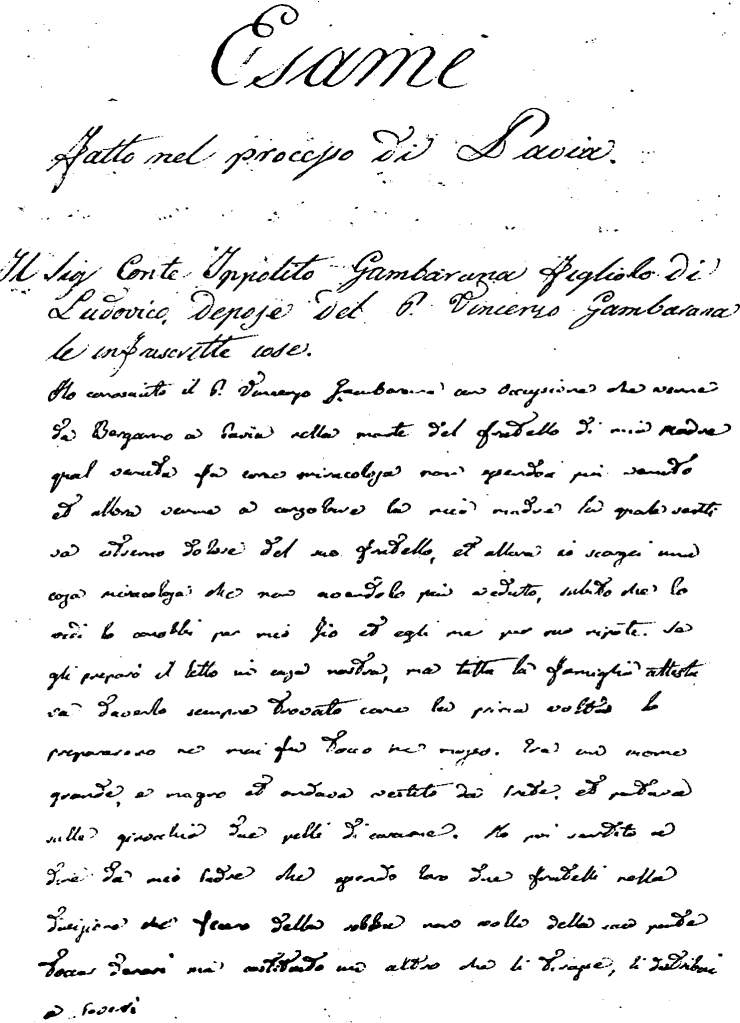 Esame
Fatto nel processo di Pavia.
Il Sig Conte Ippolito Gambarana Figliolo di
Ludovico, depose del P. Vincenzo Gambarana
le infrascritte cose.
Ho conosciuto il P. Vincenzo Gambarana con occasione che venne
da Bergamo a Pavia nella morte del fratello di mia madre
qual venuta fu cosa miracolosa non più veduto
et allora venne a consolare la mia madre la quale senti
va estremo dolore del suo fratello, et allora io scorsi una
cosa miracolosa che non avendolo più veduto, subito che lo
vidi lo conobbi per mio Zio et egli me per suo nipote. Se
gli preparò il letto in casa nostra, ma tutta la famiglia attesta
va d'averlo sempre trovato come la prima volta lo
prepararono ne mai fu tocco ne mosso. Era un uomo
grande, e magro et andava vestito da Prete, et portava
sulle ginocchia due pelli di carame. Ho poi sentito a
dire da mio Padre che essendo loro due fratelli nella
divisione che fecero della robba non volle della sua parte
toccar denari ma un altro che li, li distribuì
a Poveri